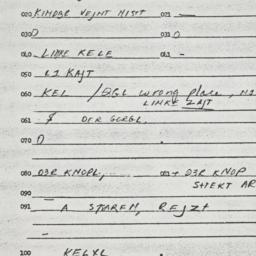 020 KINDER VEJNT MIST 021 —
030 O 031 O
040 LINKE KELE 041 -
050 LI KAJT
060 KEL / QGL wrong place,
LINKE ZAJT
061 $ DER GORGL.
070 O
080 D3R KNOPL, 081 + D3R KNOP
STEKT AR
090 —
091 A STAREM, REJZ+
-
100 KELXL